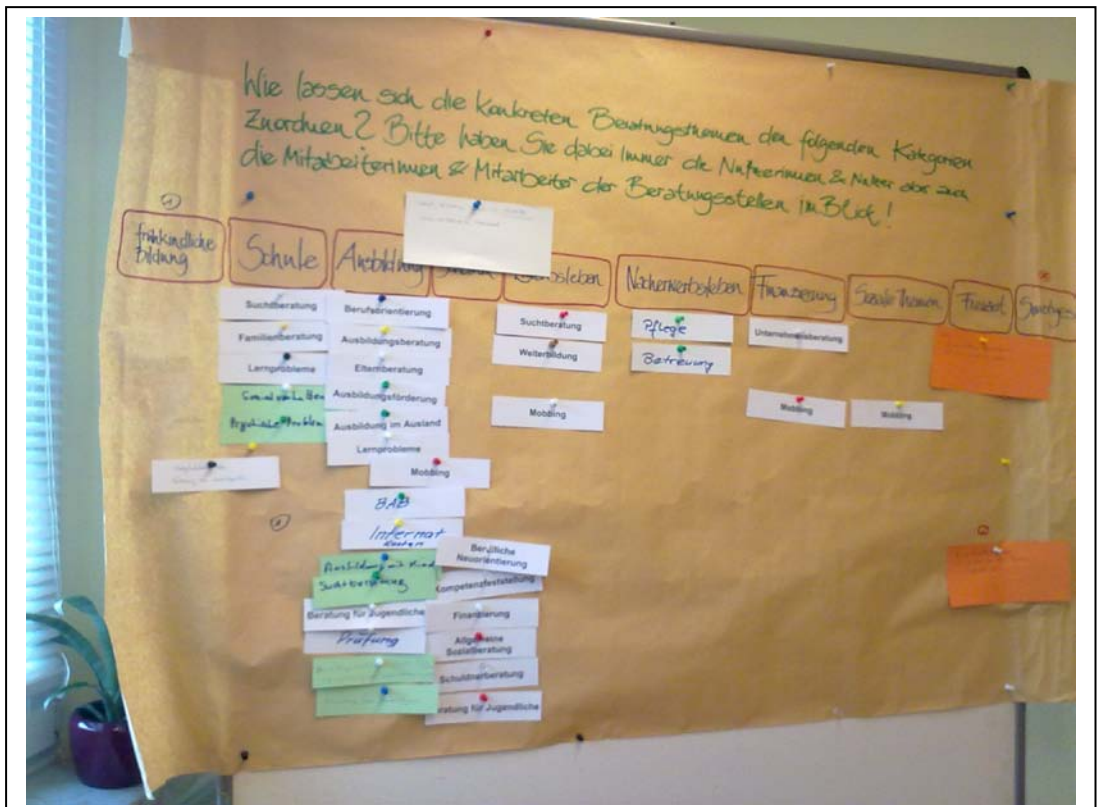 Wie lassen sich die konkreten Beratungsthemen den folgenden Kategorien
Zuordnen? Bitte haben Sie dabei immer die Nutzerinnen & Nutzer aber auch
die Mitarbeiterinnen & Mitarbeiter der Beratungsstellen im Blick!
frühkindliche
Bildung
Schule
Ausbildung
Nacherwerbsleben
Finanzierung
Soziale Themen
Freizeit
Suchtberatung
Familienberatung
Lernprobleme
Psychische Probleme
Berufsorientierung
Ausbildungsberatung
Elternberatung
Ausbildungsförderung
Ausbildung im Ausland
Lernprobleme
Mobbing
BAB
Internat
kosten
Ausbildung mit Kind
Suchtberatung
Beratung für Jugendliche
Prüfung
Berufliche
Neuorientierung
Kompetenzfeststellung
Finanzierung
Allgemeine
Sozialberatung
Schuldnerberatung
Beratung für Jugendliche
Suchtberatung
Weiterbildung
Mobbing
Pflege
Betreuung
Unternehmensberatung
Mobbing
Mobbing